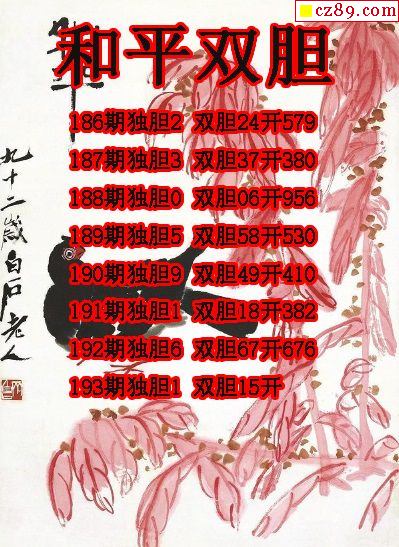 cz89.com
和平
和平双胆
186期独胆2 双胆24开579
187期独胆3 双胆37开380
188期独胆0 双胆06开956
189期独胆5 双胆58开530
190期独胆9 双胆49开410
191期独胆1 双胆18开382
192期独胆6 双胆67开676
193期独胆1 双胆15开
九十二岁白石老人